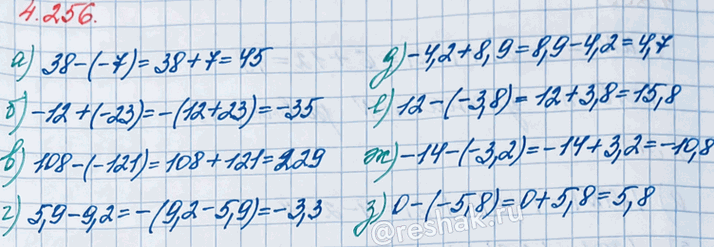 4.256.
а) 38-(-7)=38+7=45
б) -12+(-23)=-(12+23)=-35
в) 108-(-121)=108+121=229
г) 5,9-9,2=-(9,2-5,9)=-3,3
д) -4,2+8,9=8,9-4,2=4,7
е) 12-(-3,8)=12+3,8=15,8
ж) -14-(-3,2)=-14+3,2=-10,8
з) 0-(-5,8)=0+5,8=5,8
@reshak.ru